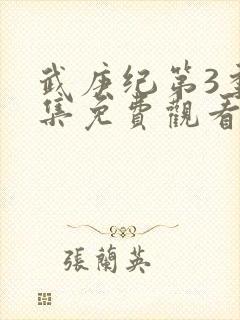 武庚纪第3季
集免費觀看
張蘭英